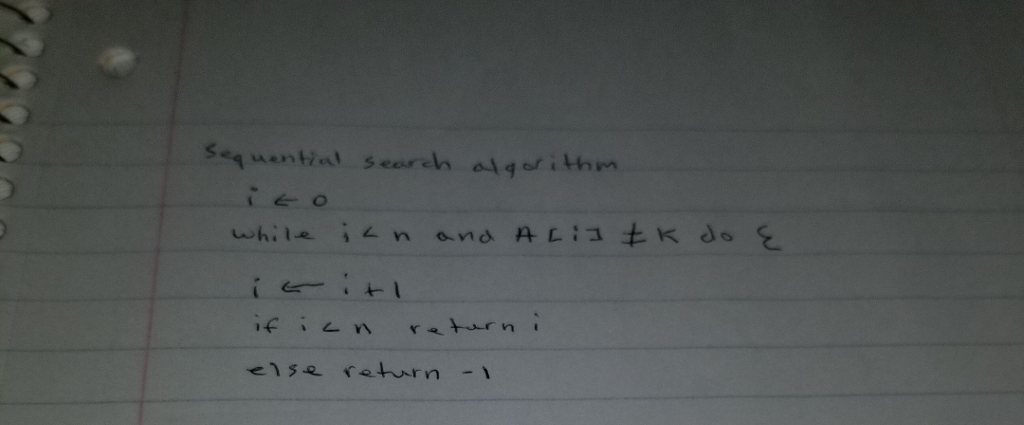 Sequential search algorithm
i ← 0
while i < n and A[i] ≠ K do {
i ← i + 1
if i < n return i
else return -1